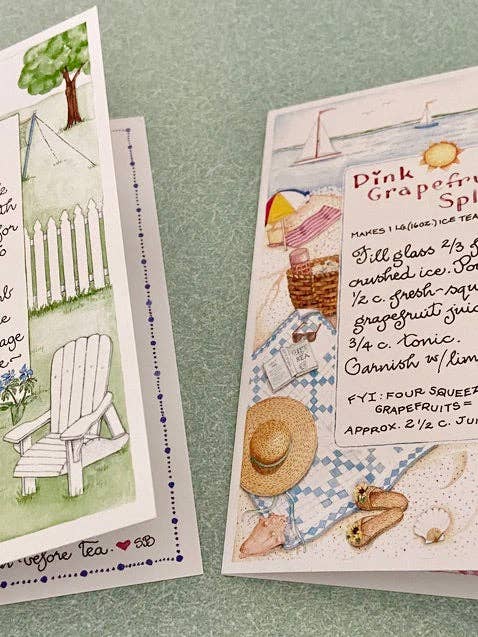 th
for
age
before Tea. ♥ SB
Pink
Grapefru
Spl
MAKES 1 LG.(16OZ.) ICE TEA
Fill glass 2/3 f
crushed ice. Po
1/2 c. fresh-squ
grapefruit juic
3/4 c. tonic.
Garnish w/ lim
FYI: FOUR SQUEEZ
GRAPEFRUITS =
APPROX. 2 1/2 C. JUI